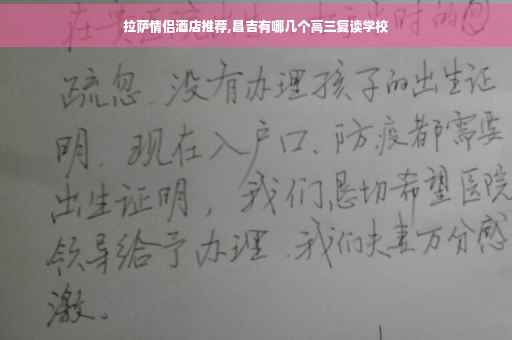 拉萨情侣酒店推荐,昌吉有哪几个高三复读学校
疏忽.没有办理孩子的出生证
明.现在入户口、防疫都需要
出生证明，我们恳切希望医院
领导给予办理.我们夫妻万分感
激。